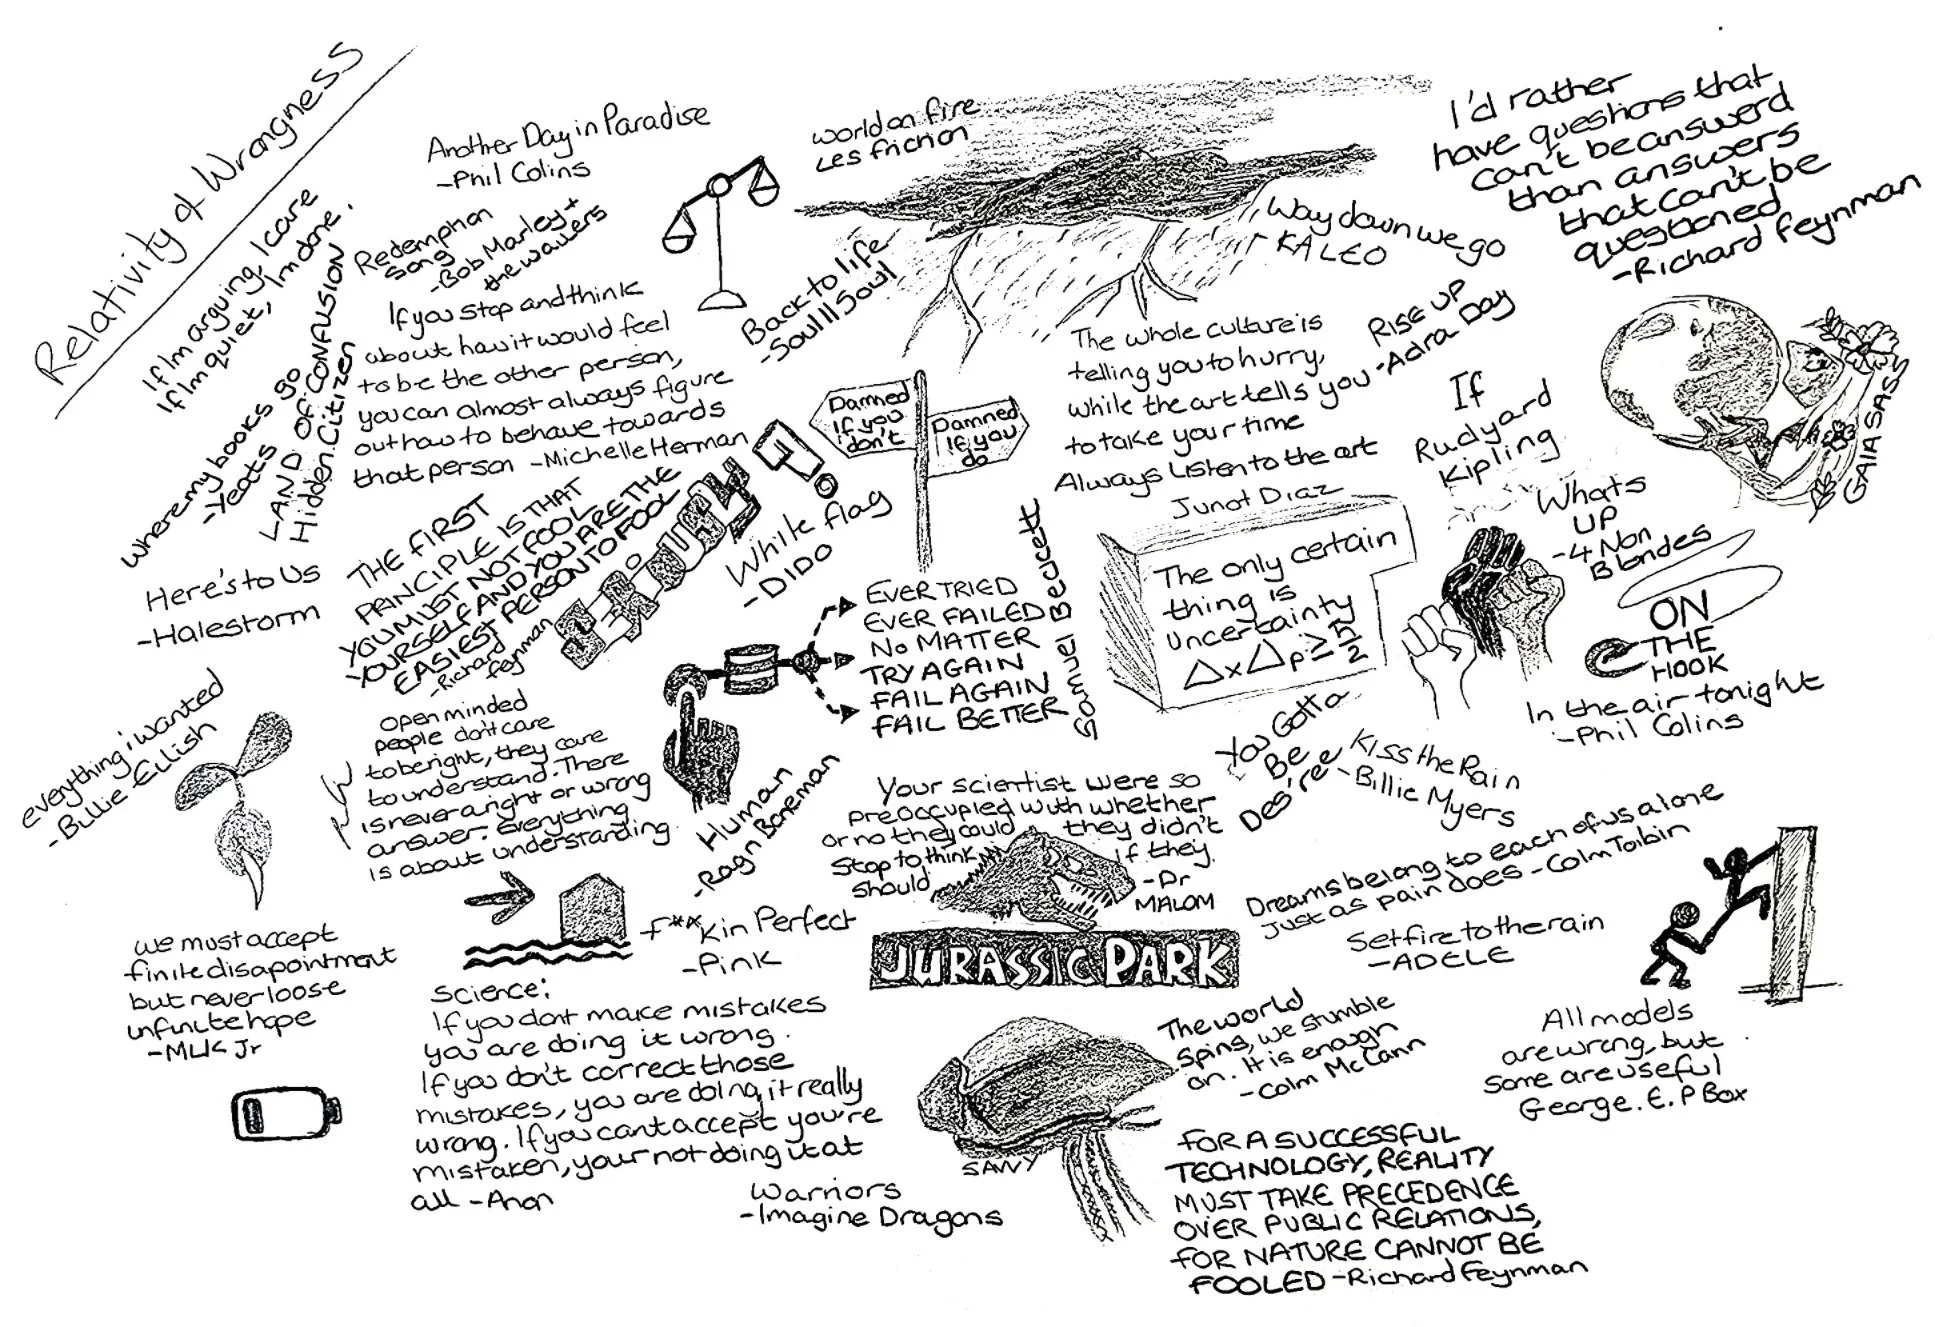 Relativity of Wrongness
If Im arguing, I care
If Im quiet, Im done.
Where my books go
-Yeats
LAND OF CONFUSION
Hidden Citizen
Another Day in Paradise
-Phil Colins
Redemption
Song
-Bob Marley +
the wailers
If you stop and think
about how it would feel
to be the other person,
you can almost always figure
out how to behave towards
that person -Michelle Herman
world on fire
Les friction
Back to life
-Soul II Soul
Way down we go
KALEO
I'd rather
have questions that
can't be answerd
than answers
that can't be
questioned
-Richard Feynman
RISE UP
-Adra Day
The whole culture is
telling you to hurry,
while the art tells you
to take your time
Always Listen to the art
Junot Diaz
Damned
If you
don't
Damned
If you
do
If
Rudyard
Kipling
GAIA SASS
Whats
UP
-4 Non
Blondes
Here's to Us
-Halestorm
THE FIRST
PRINCIPLE IS THAT
YOU MUST NOT FOOL
YOURSELF AND YOU ARE THE
EASIEST PERSON TO FOOL
-Richard
feynman
While flag
-DIDO
EVER TRIED
EVER FAILED
NO MATTER
TRY AGAIN
FAIL AGAIN
FAIL BETTER
Samuel Beckett
The only certain
thing is
uncertainty
ΔxΔp≥ħ/2
ON
THE
HOOK
In the air tonight
-Phil Colins
everything i wanted
-Billie Ellish
open minded
people don't care
to be right, they care
to understand. There
is never a right or wrong
answer. Everything
is about understanding
Human
-Rag n Boneman
You Gotta
Be
Des'ree
Kiss the Rain
-Billie Myers
Your scientist were so
preoccupied with whether
or no they could they didn't
Stop to think if they
should
-Dr
MALOM
JURASSIC PARK
Dreams belong to each of us alone
just as pain does -Colm Toibin
Set fire to the rain
-ADELE
f**kin Perfect
-Pink
we must accept
finite disapointment
but never loose
infinite hope
-MLK Jr
Science:
If you dont make mistakes
you are doing it wrong.
If you don't correct those
mistakes, you are doing it really
wrong. If you cant accept you're
mistaken, your not doing it at
all -Anon
SAVVY
Warriors
-Imagine Dragons
The world
Spins, we stumble
on. It is enough
-Colm McCann
All models
are wrong, but
some are useful
George. E. P Box
FOR A SUCCESSFUL
TECHNOLOGY, REALITY
MUST TAKE PRECEDENCE
OVER PUBLIC RELATIONS,
FOR NATURE CANNOT BE
FOOLED -Richard Feynman